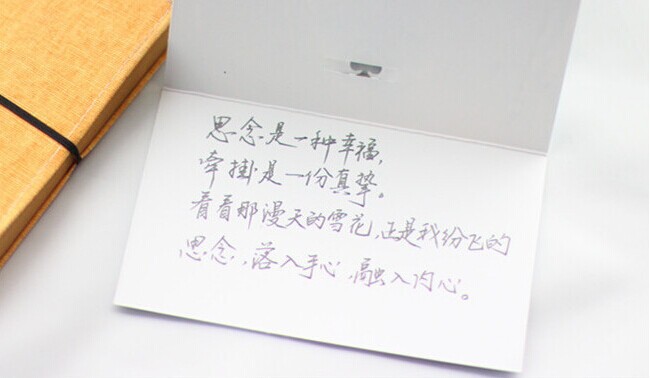 思念是一种幸福,
牵掛是一份真挚。
看看那漫天的雪花,正是我纷飞的
思念,落入手心,融入内心。